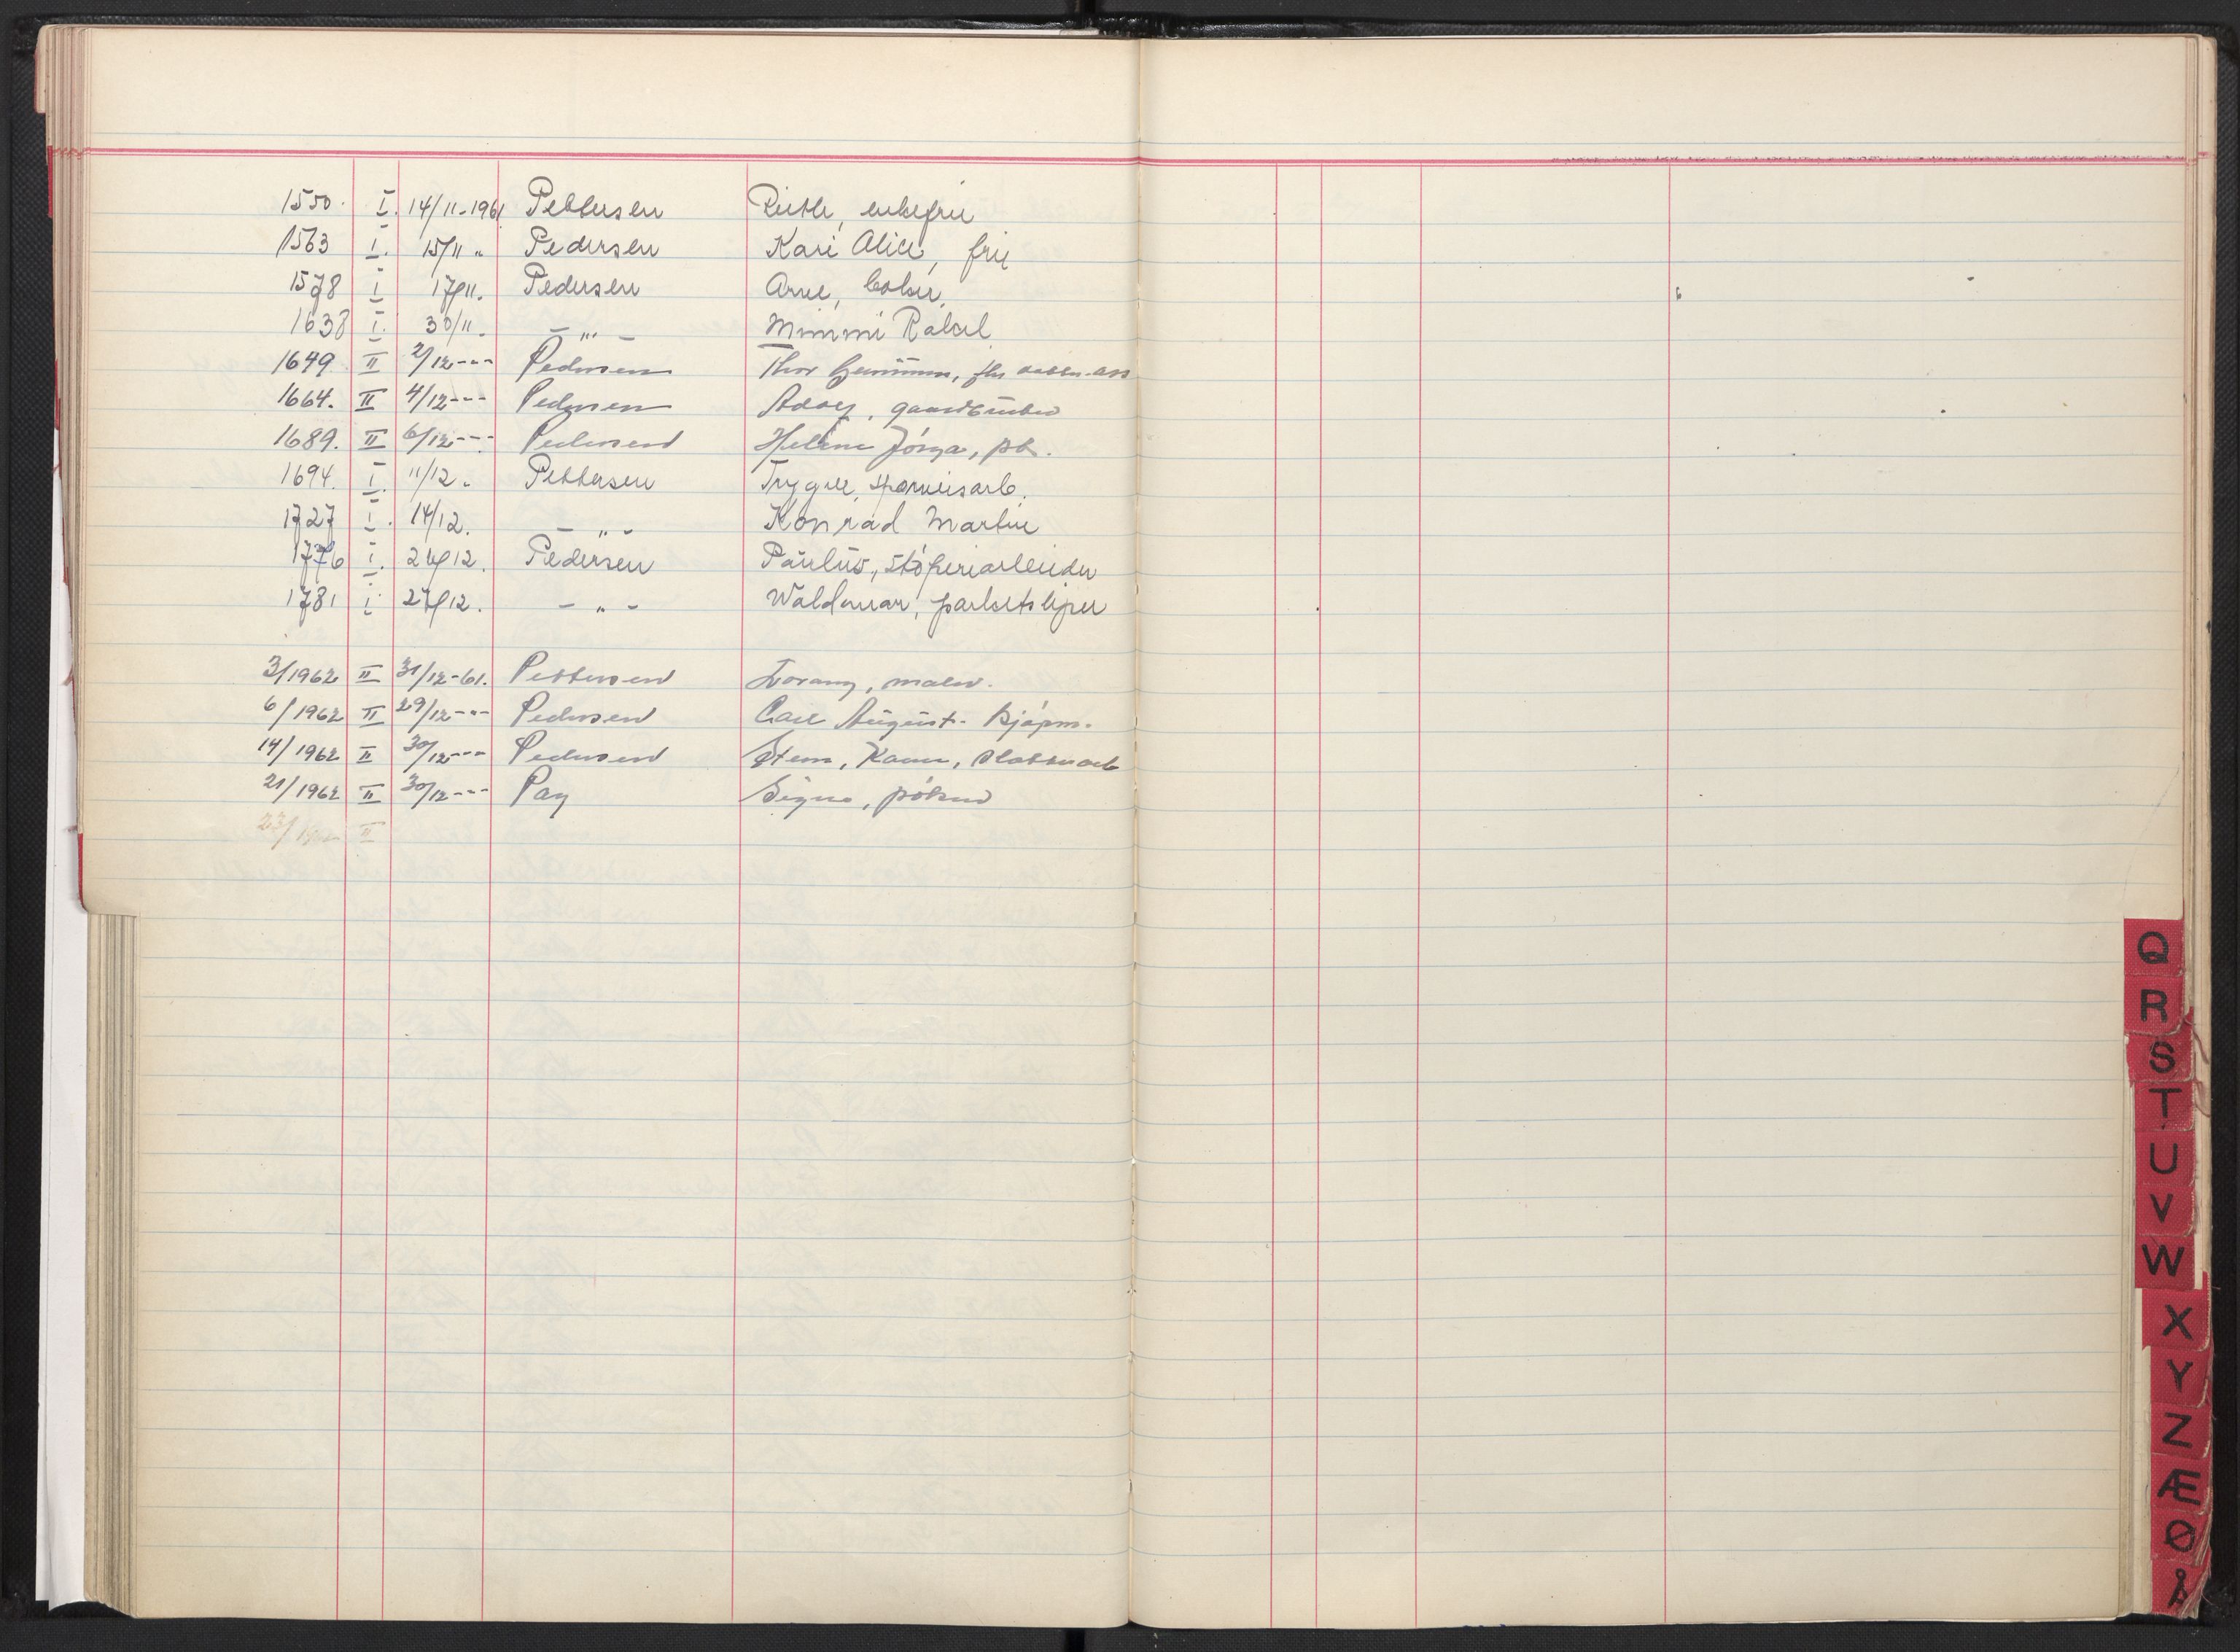 1550. I. 14/11-1961 Pettersen Ruth, enkefru
1563 I. 15/11 " Pedersen Kari Alice, fru
1578 I 17/11. Pedersen Arne, baker.
1638 I. 30/11. - " - Mimmi Rakel
1649 II 2/12 - " - Pedersen Thor
1664. II 4/12 - " - Pedersen Adolf, gaardbruker
1689. II 6/12 - " - Pedersen Helene Jörga, pb.
1694. I. 11/12. Pettersen Trygve, sporveisarb.
1727 I. 14/12. - " - Konrad Martin
1776 I. 24/12. Pedersen Paulus, støperiarbeider
1781 I 27/12. - " - Waldemar, parketsliper
3/1962 II 31/12-61. Pettersen maler.
6/1962 II 29/12 - " - Pedersen Carl August. kjøpm.
14/1962 II 30/12 - " - Pedersen
21/1962 II 30/12 - " - Pay Signe,
23/1962 II
Q
R
S
T
U
V
W
X
Y
Z
Æ
Ø
Å